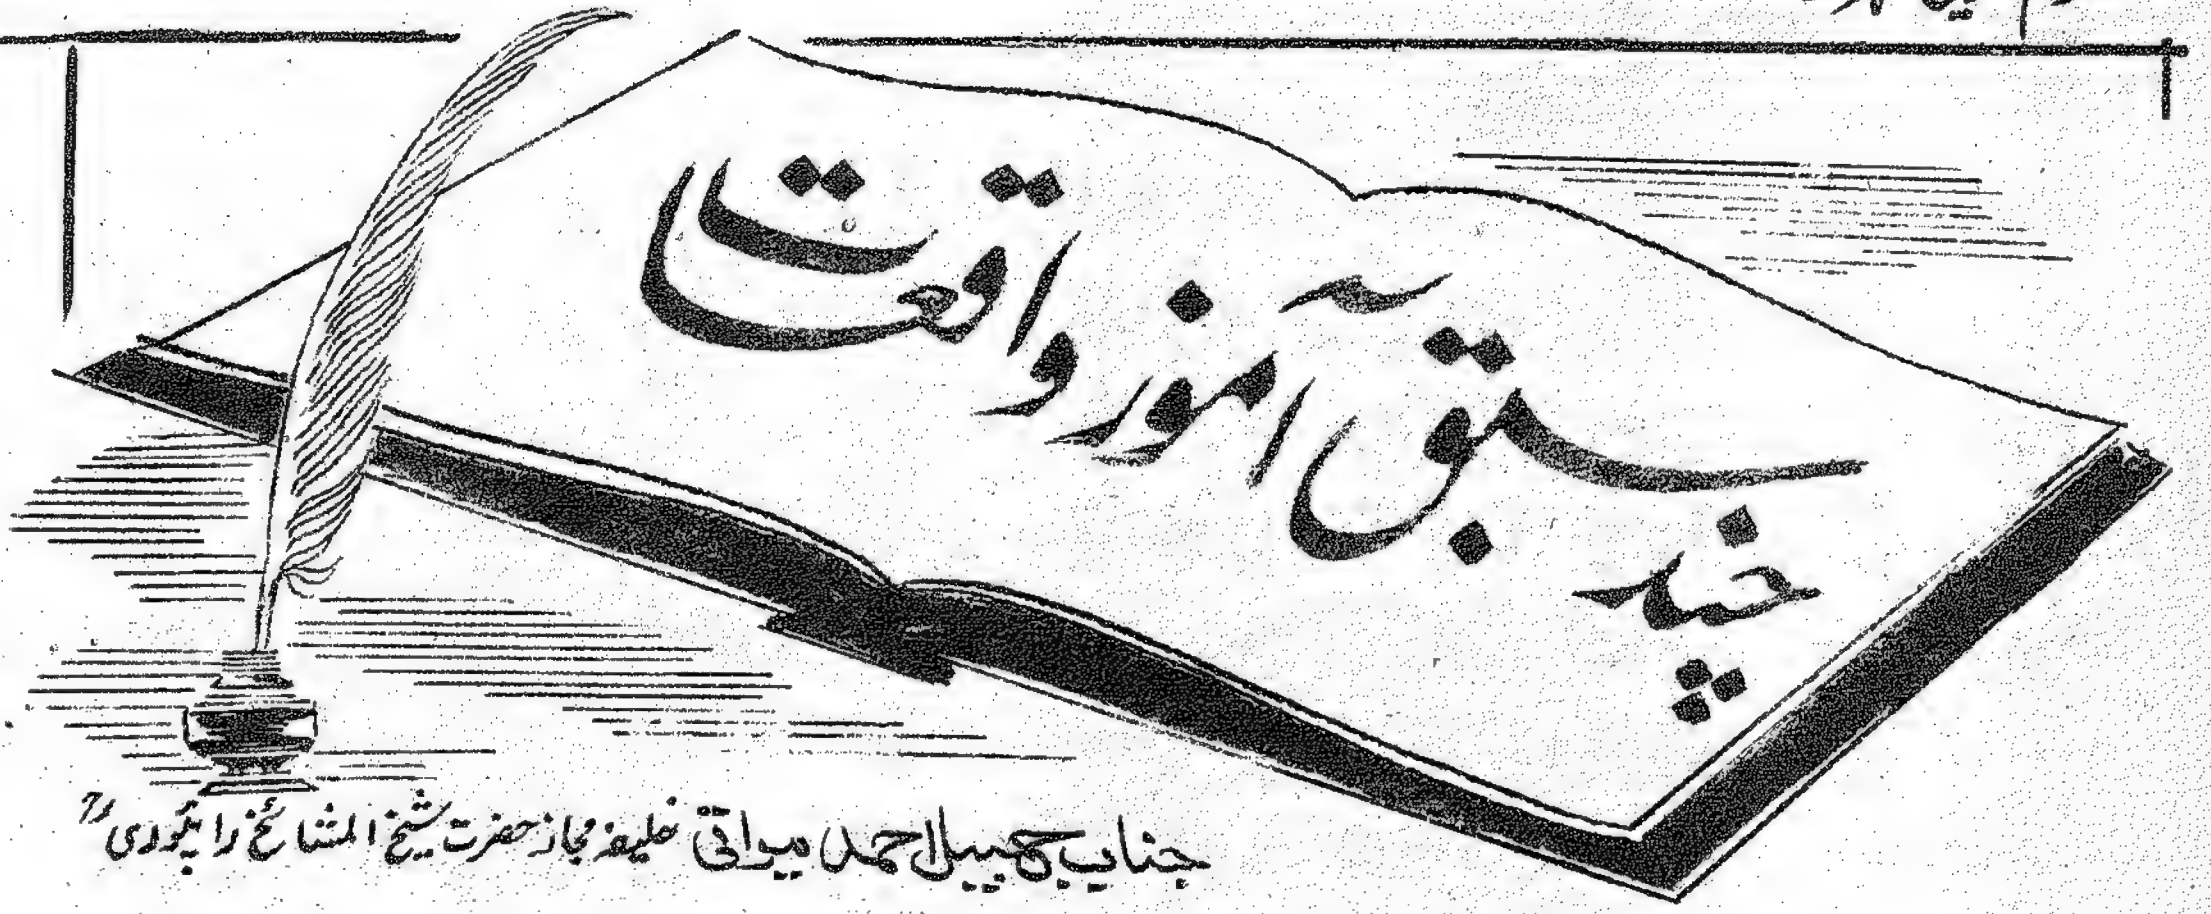 چند سبق آموز واقعات
جناب جمیل احمد میواتی خلیفہ مجاز حضرت شیخ المشائخ رائپوری رح